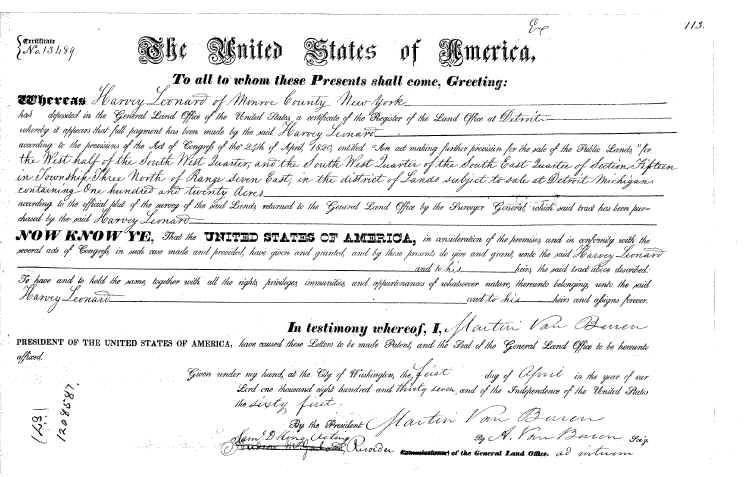 Ex
113.
Certificate
No. 13489
The United States of America,
To all to whom these Presents shall come, Greeting:
Whereas Harvey Leonard of Monroe County New York
has deposited in the General Land Office of the United States, a certificate of the Register of the Land Office at Detroit
whereby it appears that full payment has been made by the said Harvey Leonard
according to the provisions of the Act of Congress of the 24th of April, 1820, entitled "An act making further provision for the sale of the Public Lands," for
the West half of the South West Quarter, and the South West Quarter of the South East Quarter of Section Fifteen
in Township Three North of Range seven East, in the district of Lands subject to sale at Detroit Michigan
containing One hundred and twenty Acres
according to the official plat of the survey of the said Lands, returned to the General Land Office by the Surveyor General, which said tract has been pur-
chased by the said Harvey Leonard
NOW KNOW YE, That the UNITED STATES OF AMERICA, in consideration of the premises, and in conformity with the
several acts of Congress, in such case made and provided, have given and granted, and by these presents do give and grant, unto the said Harvey Leonard
and to his heirs, the said tract above described.
To have and to hold the same, together with all the rights, privileges, immunities, and appurtenances of whatsoever nature, thereunto belonging, unto the said
Harvey Leonard and to his heirs and assigns forever.
In testimony whereof, I, Martin Van Buren
PRESIDENT OF THE UNITED STATES OF AMERICA, have caused these Letters to be made Patent, and the Seal of the General Land Office to be hereunto
affixed.
Given under my hand, at the City of Washington, the first day of April in the year of our
Lord one thousand eight hundred and thirty seven, and of the Independence of the United States
the sixty first.
By the President: Martin Van Buren
By A. Van Buren Sec'y.
Sam'l D King Acting
Recorder of the General Land Office. ad interim
(131)
1208587.